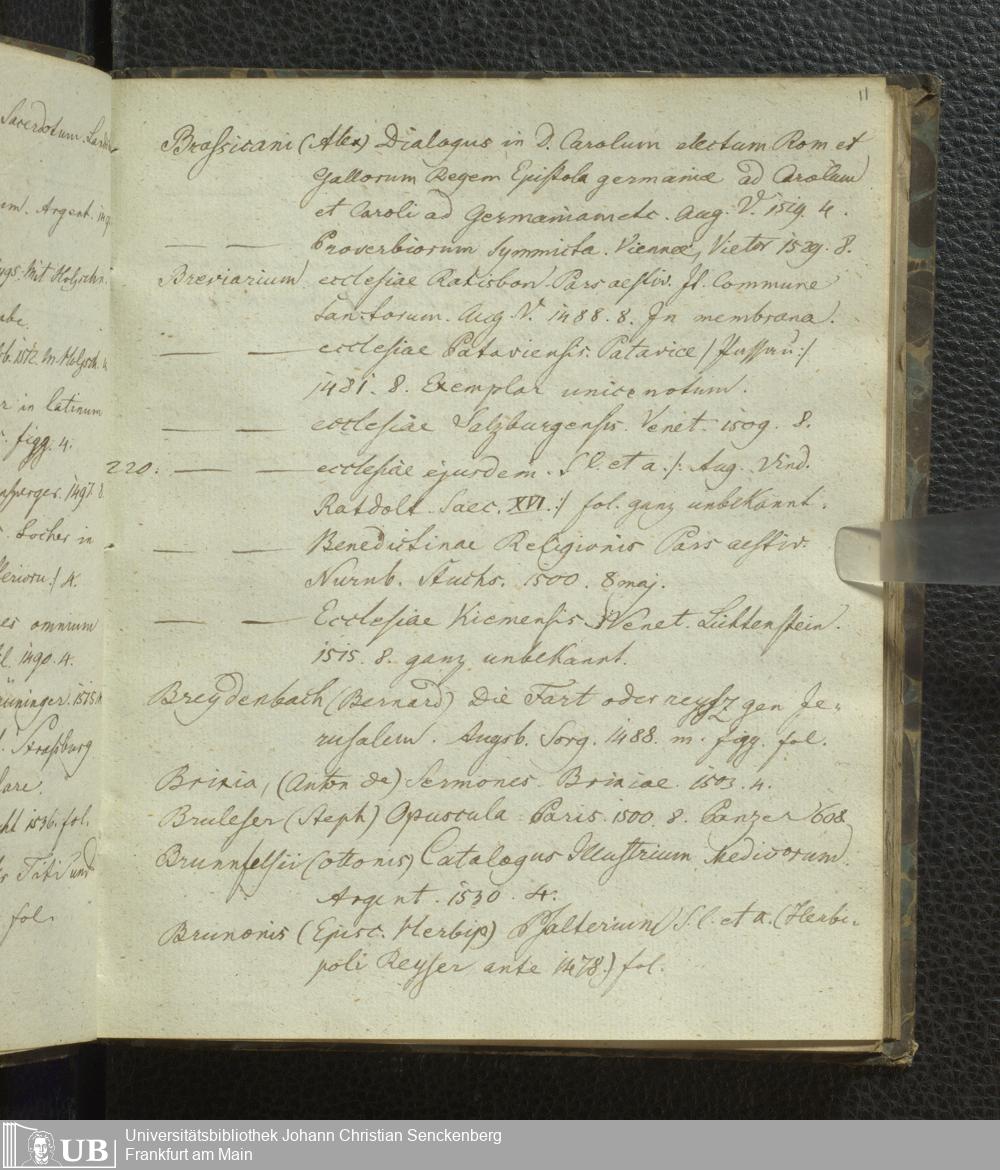 11
Sacerdotum.
um. Argent.
Mit Holzschn.
abe.
1572. m. Holzsch.
r in latinum
figg. 4.
1497. 8.
Locher in
4.
es omnium
1490. 4.
rüninger. 1575
Straßburg
lare.
cht 1536. fol.
Titi und
fol.
Brassicani (Alex) Dialogus in D. Carolum electum Rom et
Gallorum Regem Epistola germaniæ ad Carolum
et Caroli ad Germaniam etc. Aug. V. 1519. 4.
— — Proverbiorum Symmicta. Viennæ, Vietor 1529. 8.
Breviarium ecclesiae Ratisbon. Pars aestiv. It. Commune
Sanctorum. Aug. V. 1488. 8. In membrana.
— — ecclesiae Pataviensis. Pataviæ /: Passau :/
1481. 8. Exemplar unice notum.
— — ecclesiae Salzburgensis. Venet. 1509. 8.
220. — — ecclesiae ejusdem. S. l. et a. /: Aug. Vind.
Ratdolt. Saec. XVI. :/ fol. ganz unbekannt.
— — Benedictinae Religionis Pars aestiv.
Nurnb. Stuchs. 1500. 8 maj.
— — Ecclesiae Kiemensis Venet. Lichtenstein.
1515. 8. ganz unbekannt.
Breydenbach (Bernard) Die Fart oder reyß gen Je=
rusalem. Augsb. Sorg. 1488. m. figg. fol.
Brixia, (Anton de) Sermones. Brixiae. 1503. 4.
Brulefer (Steph) Opuscula Paris. 1500. 8. Panzer 608
Brunnfelsii (ottonis) Catalogus Illustrium Medicorum.
Argent. 1530. 4.
Brunonis (Episc. Herbip) Psalterium S. l. et a. (Herbi=
poli Reyser ante 1478.) fol.
UB
Universitätsbibliothek Johann Christian Senckenberg
Frankfurt am Main